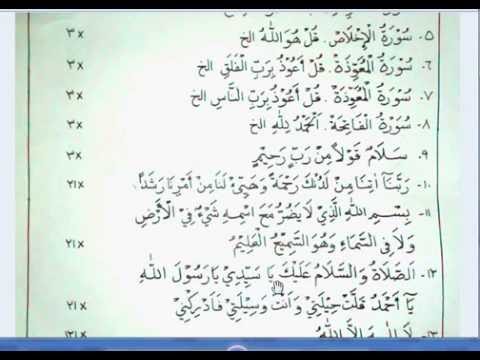 ٥- سُوْرَةُ الْإِخْلَاصْ. قُلْ هُوَ اللهُ الخ ×٣
٦- سُوْرَةُ الْمُعَوِّذَةْ. قُلْ أَعُوْذُ بِرَبِّ الْفَلَقِ الخ ×٣
٧- سُوْرَةُ الْمُعَوِّذَةْ. قُلْ أَعُوْذُ بِرَبِّ النَّاسِ الخ ×٣
٨- سُوْرَةُ الْفَاتِحَةْ. اَلْحَمْدُ لِلّٰهِ الخ
٩. سَلَامٌ قَوْلًا مِنْ رَبٍّ رَحِيْمٍ ×٣
١٠- رَبَّنَا آتِنَا مِنْ لَدُنْكَ رَحْمَةً وَهَيِّئْ لَنَا مِنْ أَمْرِنَا رَشَدًا ×٢١
١١- بِسْمِ اللهِ الَّذِيْ لَا يَضُرُّ مَعَ اسْمِهِ شَيْءٌ فِي الْأَرْضِ
وَلَا فِي السَّمَاءِ وَهُوَ السَّمِيْعُ الْعَلِيْمُ ×٢١
١٢- اَلصَّلَاةُ وَالسَّلَامُ عَلَيْكَ يَا سَيِّدِيْ يَا رَسُوْلَ اللهِ
يَا أَحْمَدُ قَلَّتْ حِيْلَتِيْ وَأَنْتَ وَسِيْلَتِيْ فَأَدْرِكْنِيْ ×٢١
١٣- لَا إِلٰهَ إِلَّا اللهُ